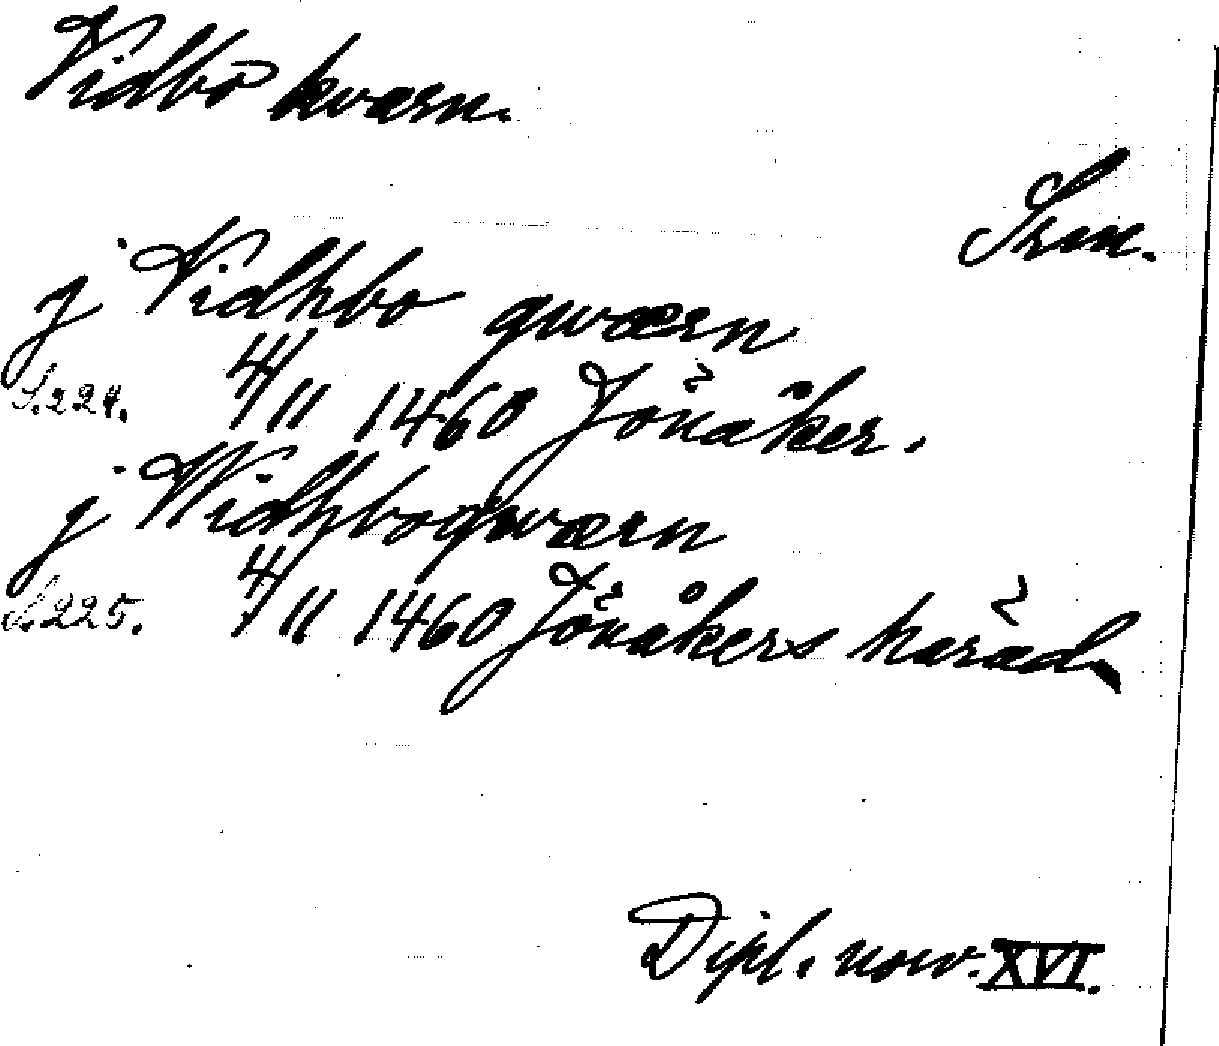 Vidbo kværn.
Srm.
j Vidhbo qwærn
S. 224. 4/11 1460 Jönåker.
j Widhboqwærn
S. 225. 4/11 1460 Jönåkers härad
Dipl. norv. XVI.